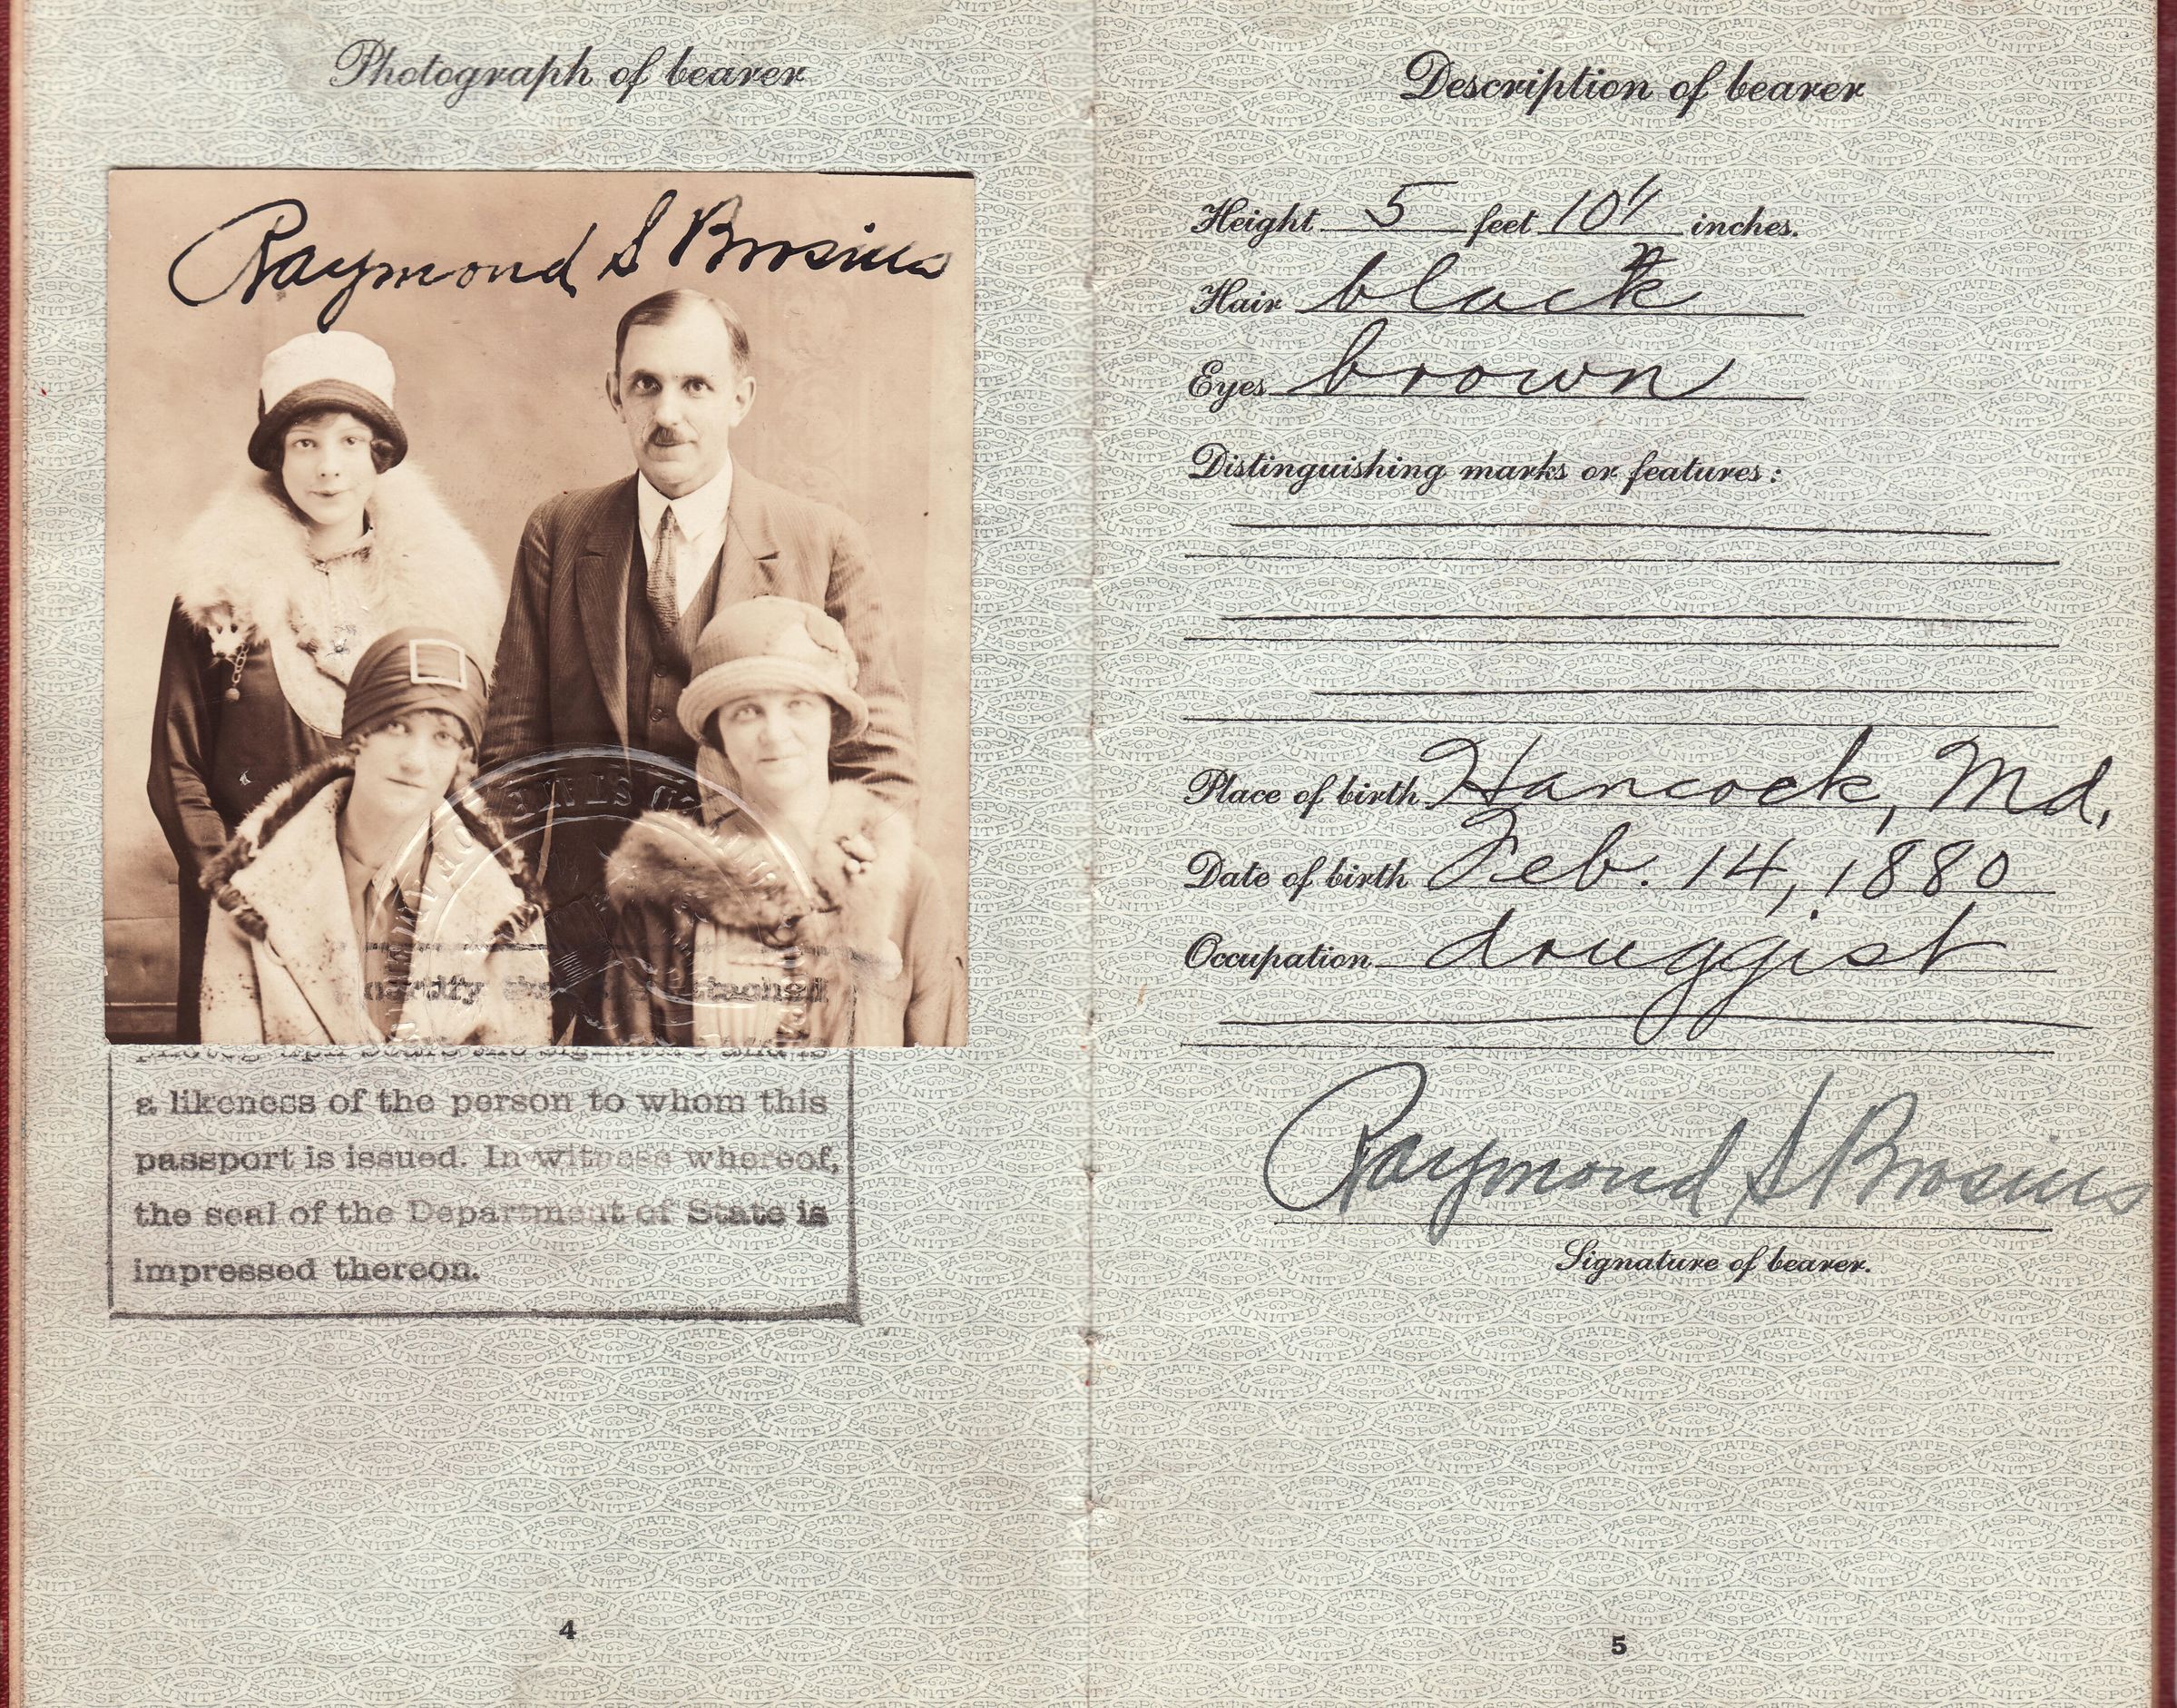 Photograph of bearer
Raymond S Brosius
certify attached
a likeness of the person to whom this
passport is issued. In witness whereof,
the seal of the Department of State is
impressed thereon.
4
Description of bearer
Height 5 feet 10" inches.
Hair black
Eyes brown
Distinguishing marks or features:
Place of birth Hancock, Md.
Date of birth Feb. 14, 1880
Occupation druggist
Raymond S Brosius
Signature of bearer.
5